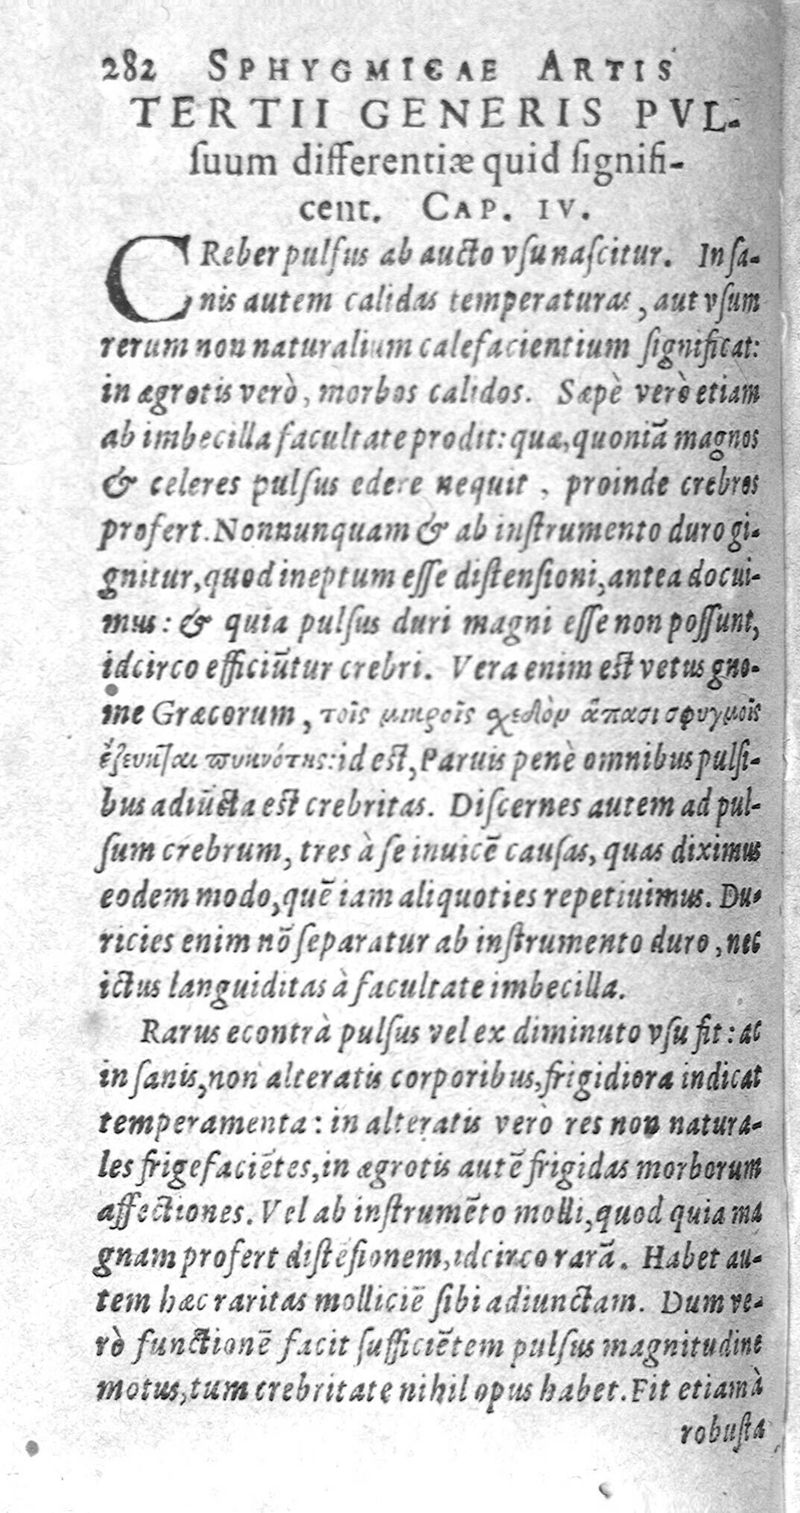 282 SPHYGMICAE ARTIS
TERTII GENERIS PVL-
ſuum differentiæ quid ſignifi-
cent. CAP. IV.
CReber pulſus ab aucto vſu naſcitur. In ſa-
nis autem calidas temperaturas, aut vſum
rerum non naturalium calefacientium ſignificat:
in ægrotis verò, morbos calidos. Sæpè verò etiam
ab imbecilla facultate prodit: quæ, quoniā magnos
& celeres pulſus edere nequit, proinde crebros
profert. Nonnunquam & ab inſtrumento duro gi-
gnitur, quod ineptum eſſe diſtenſioni, antea docui-
mus: & quia pulſus duri magni eſſe non poſſunt,
idcirco efficiūtur crebri. Vera enim eſt vetus gno-
me Græcorum, τοῖς μικροῖς σχεδὸν ἅπασι σφυγμοῖς
πυκνότης: id eſt, Paruis penè omnibus pulſi-
bus adiūcta eſt crebritas. Diſcernes autem ad pul-
ſum crebrum, tres à ſe inuicē cauſas, quas diximus
eodem modo, quē iam aliquoties repetiuimus. Du-
ricies enim nō ſeparatur ab inſtrumento duro, nec
ictus languiditas à facultate imbecilla.
Rarus econtrà pulſus vel ex diminuto vſu fit: ac
in ſanis, non alteratis corporibus, frigidiora indicat
temperamenta: in alteratis verò res non natura-
les frigefaciētes, in ægrotis autē frigidas morborum
affectiones. Vel ab inſtrumēto molli, quod quia ma
gnam profert diſtēſionem, idcirco rarā. Habet au-
tem hæc raritas molliciē ſibi adiunctam. Dum ve-
rò functionē facit ſufficiētem pulſus magnitudine
motus, tum crebritate nihil opus habet. Fit etiam à
robuſta